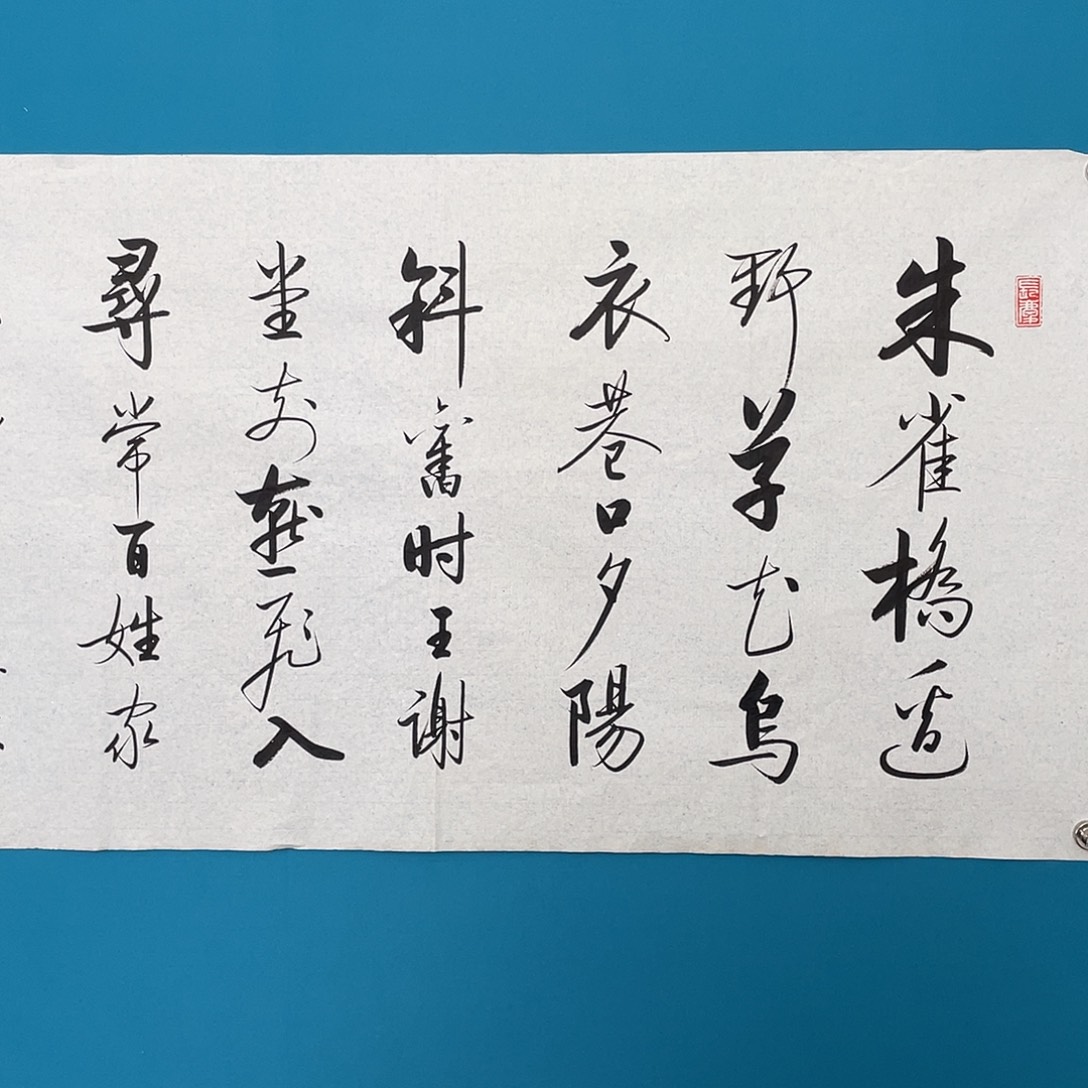 朱雀橋邊
野草花烏
衣巷口夕陽
斜舊时王谢
堂前燕飛入
尋常百姓家